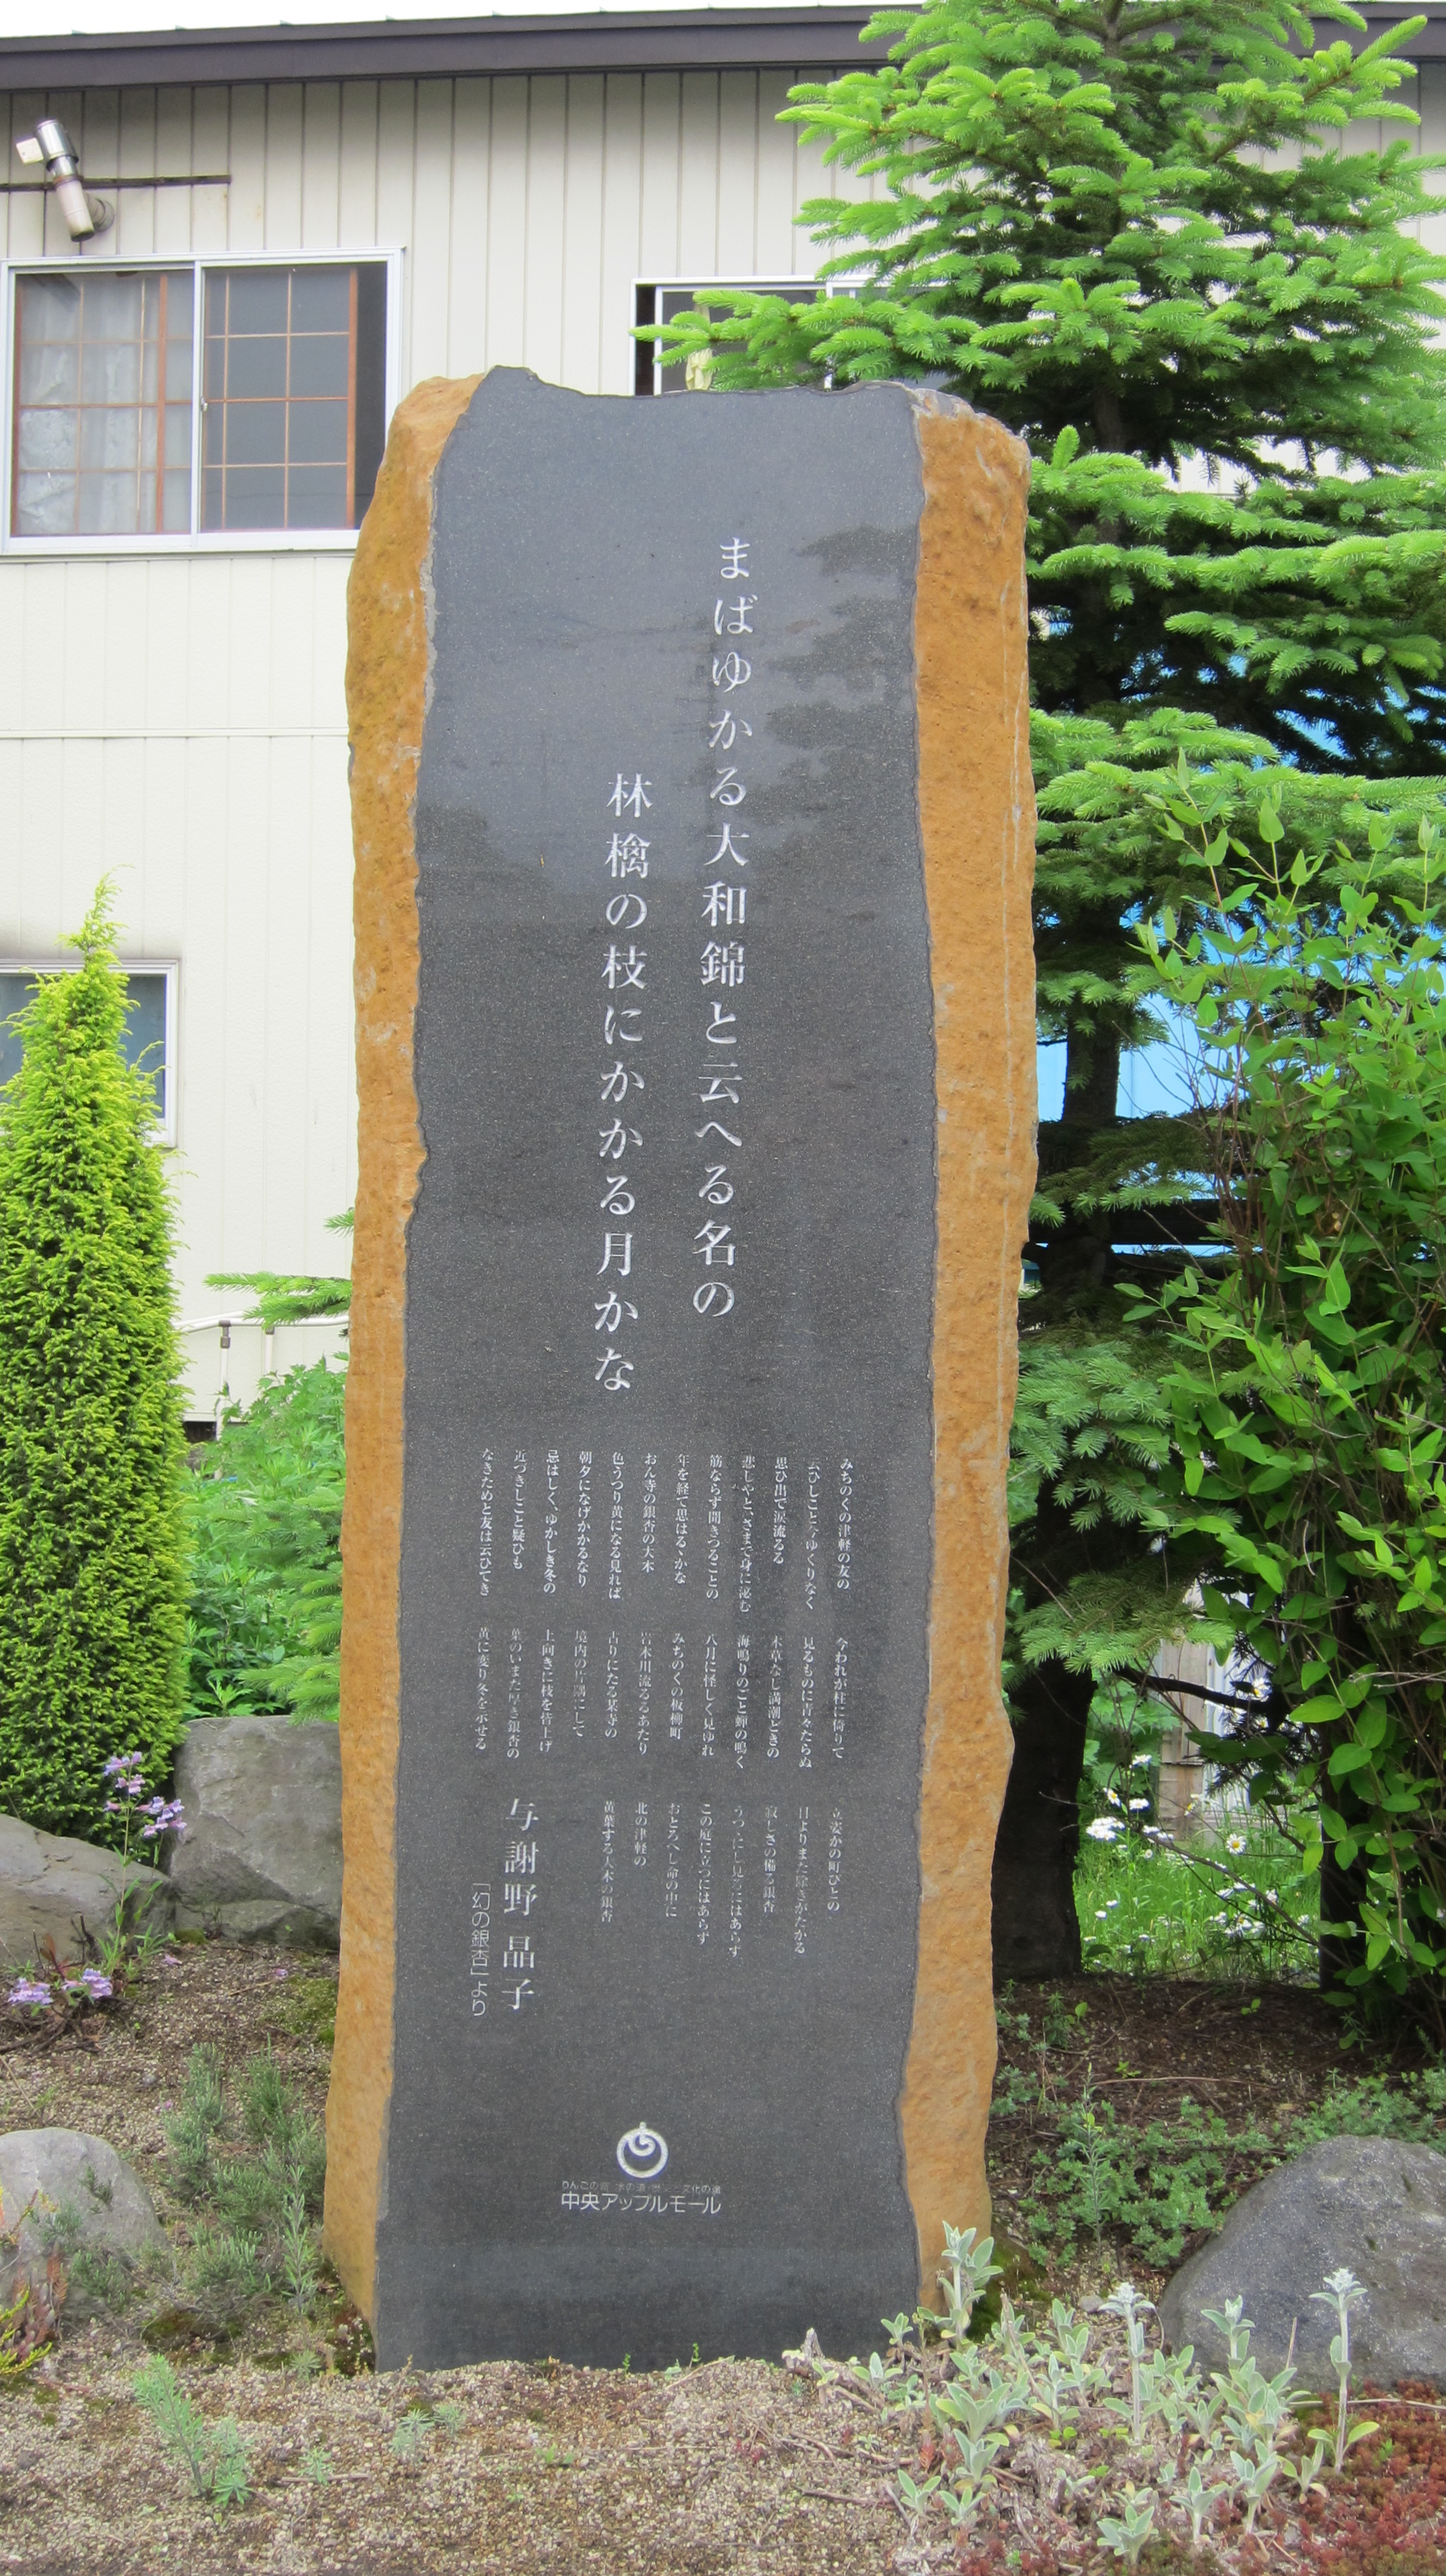 まばゆかる大和錦と云へる名の
林檎の枝にかかる月かな
みちのくの津軽の友の
云ひしこと今ゆくりなく
思ひ出で涙流るる
悲しやと、さまで身に泌む
筋ならず聞きつることの
年を経て思はるゝかな
おん寺の銀杏の大木
色うつり黄になる見れば
朝夕になげかかるなり
忌はしく、ゆかしき冬の
近づきしこと疑ひも
なきためと友は云ひてき
今われが柱に倚りて
見るものに青々たらぬ
木草なし満潮どきの
海鳴りのごと蝉の鳴く
八月に怪しく見ゆれ
みちのくの板柳町
岩木川流るるあたり
古りにたる某寺の
境内の片隅にして
上向きに枝を皆上げ
葉のいまだ厚き銀杏の
黄に変り冬を示せる
立姿かの町びとの
目よりまた除きがたかる
寂しさの備る銀杏
うつにし見るにはあらず
この庭に立つにはあらず
おとろへし命の中に
北の津軽の
黄葉する大木の銀杏
与謝野晶子
「幻の銀杏」より
中央アップルモール